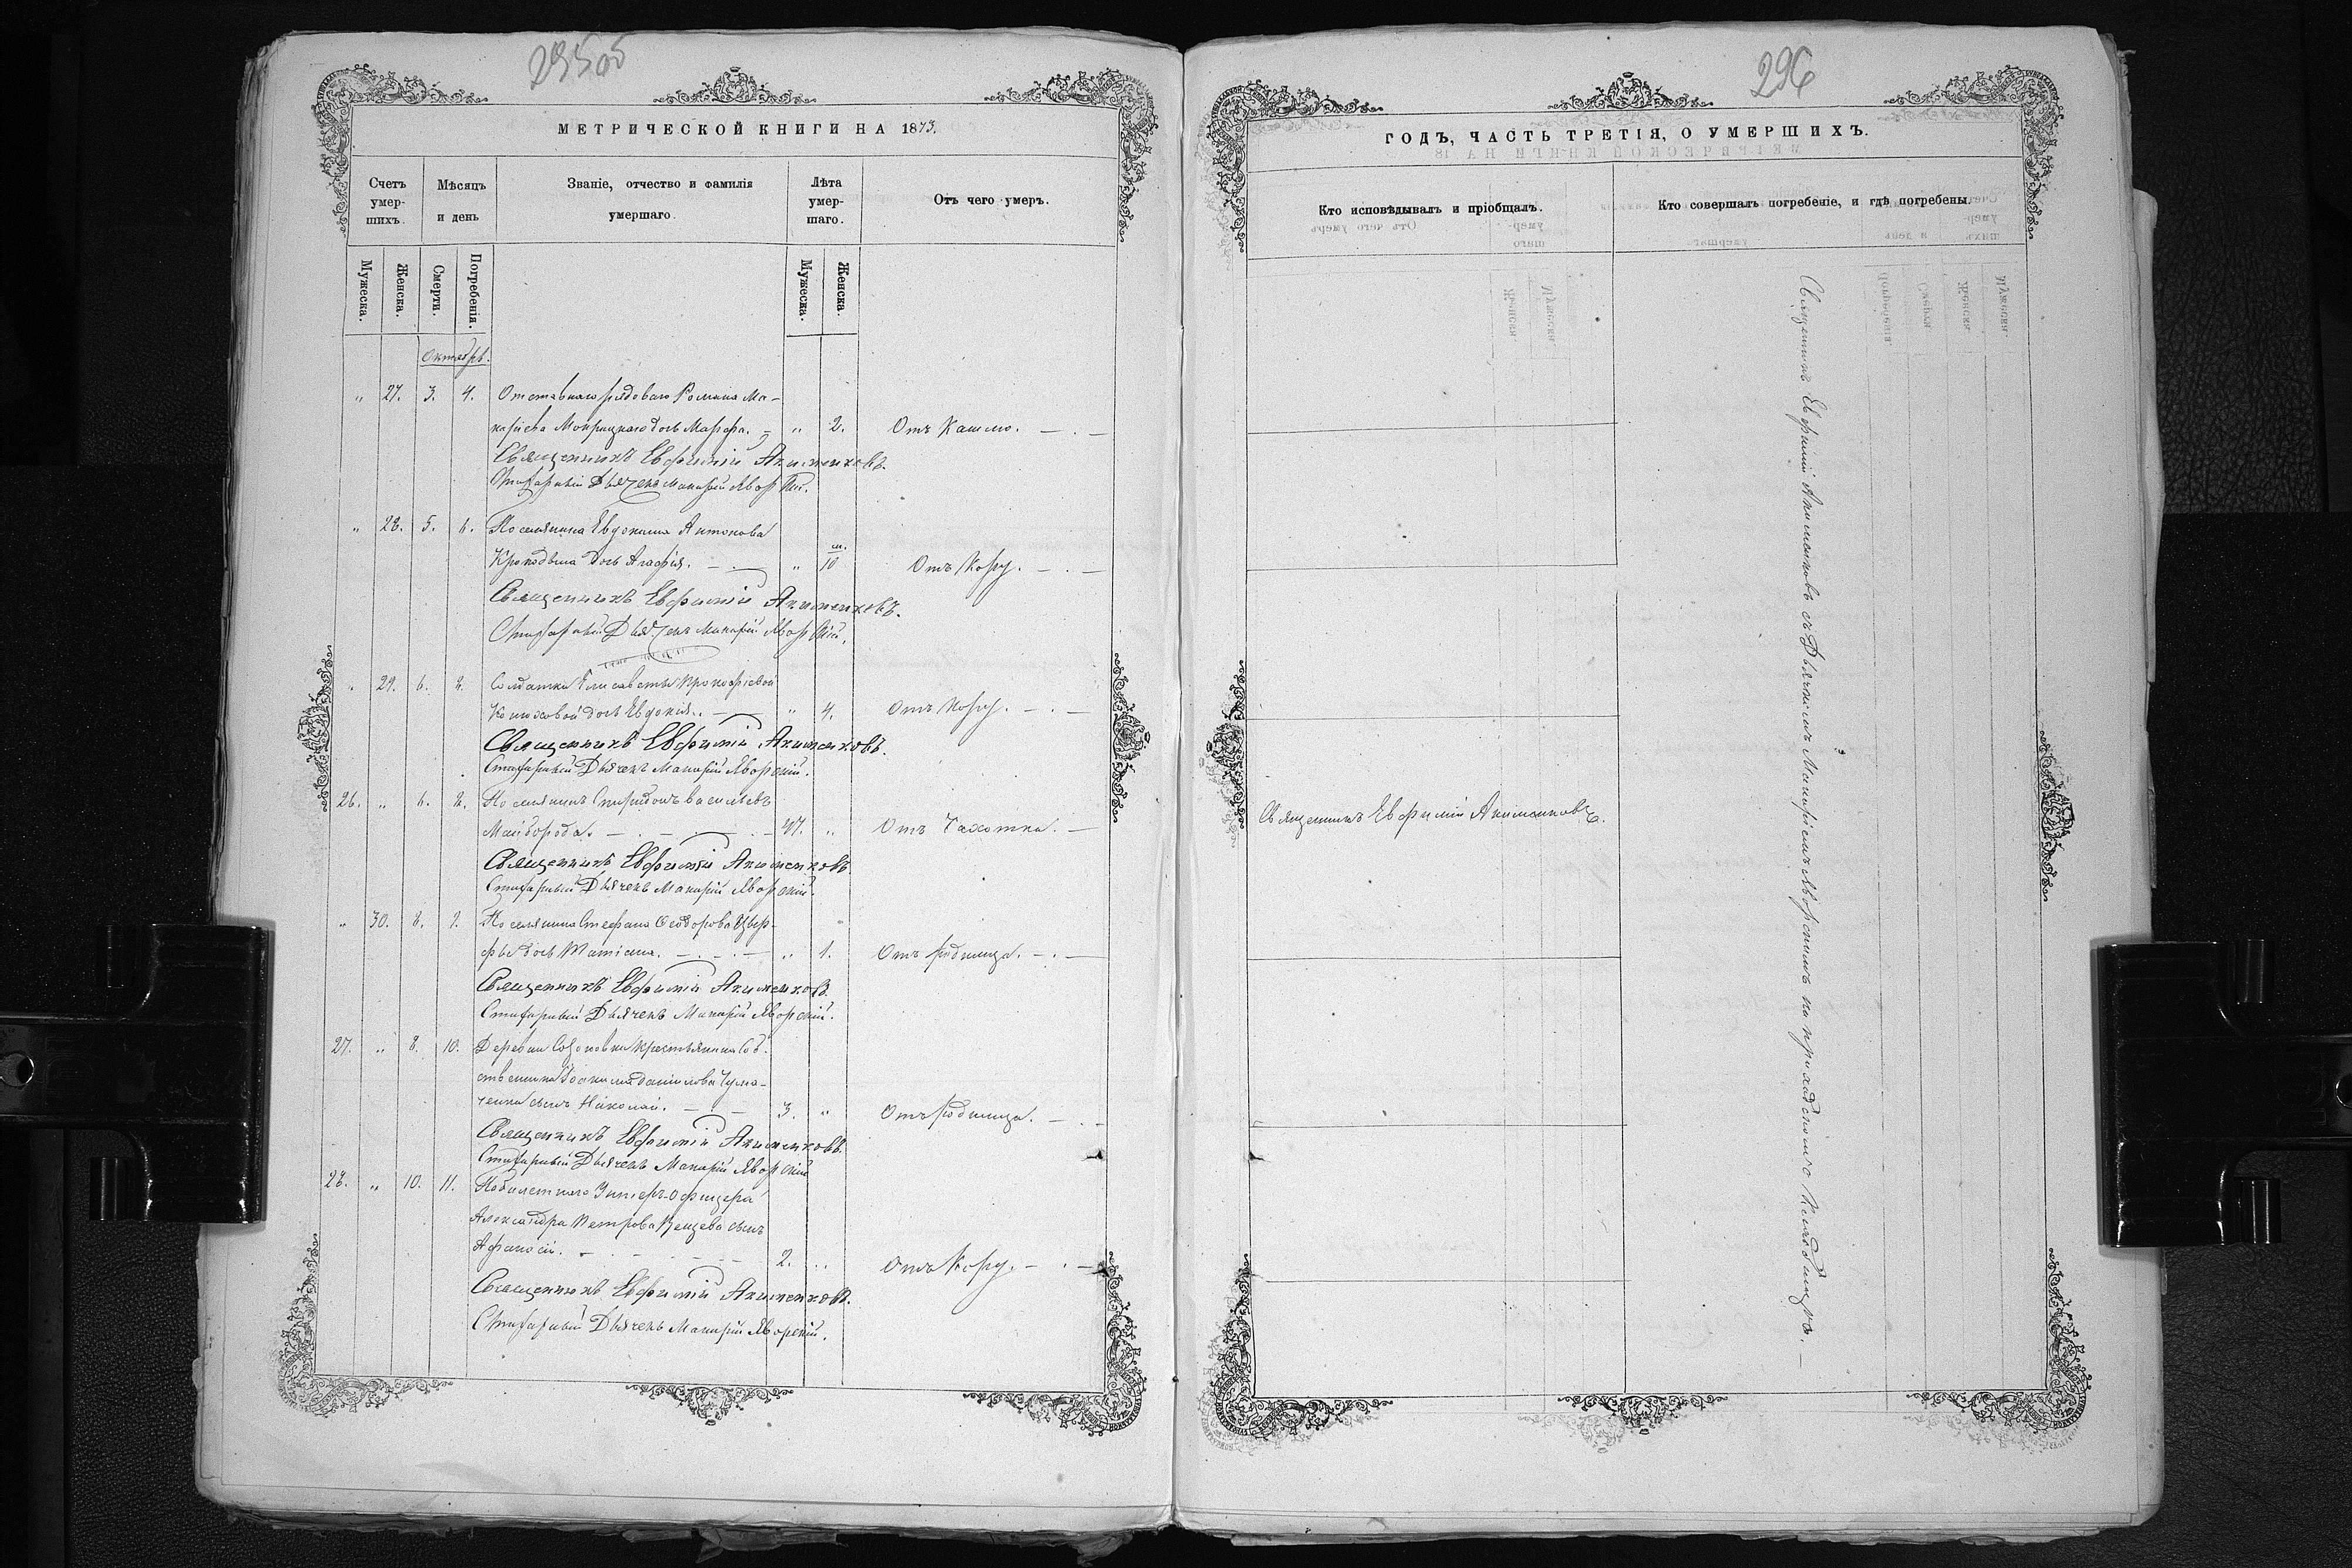 295об
МЕТРИЧЕСКОЙ КНИГИ НА 1873.
Счетъ умер-шихъ.
Мѣсяцъ и день
Званіе, отчество и фамилія умершаго.
Лѣта умер-шаго.
Отъ чего умеръ.
Мужеска.
Женска.
Смерти.
Погребенія.
Мужеска.
Женска.
Октябрь.
„ 27. 3. 4. Отставнаго рядоваго Романа Ма-
карiева дочь Марфа. „ 2. Отъ Кашлю.
Священникъ Евфимій Акименковъ.
Стихарный Дьячекъ Макарій Яворскій.
„ 28. 5. 6. Поселянина Евдокима Антонова
дочь Агафія. „ м. 10 Отъ Кору.
Священникъ Евфимій Акименковъ.
Стихарный Дьячекъ Макарій Яворскій.
„ 29. 6. 8. Солдатки Елисаветы Прокофіевой
дочь Евдокія. „ 4. Отъ Кору.
Священникъ Евфимій Акименковъ.
Стихарный Дьячекъ Макарій Яворскій.
26. „ 6. 8. Поселянинъ Спиридонъ Васильевъ
Майборода. 47. „ Отъ Чахотки.
Священникъ Евфимій Акименковъ
Стихарный Дьячекъ Макарій Яворскій.
„ 30. 8. 9. Поселянина Стефана Ѳеодорова
дочь Татіана. „ 1. Отъ Родимца.
Священникъ Евфимій Акименковъ.
Стихарный Дьячекъ Макарій Яворскій.
27. „ 8. 10. Деревни крестьянина Соб-
ственника Іоакима Даніилова Чума-
ченка сынъ Николай. 3. „ Отъ Родимца.
Священникъ Евфимій Акименковъ.
Стихарный Дьячекъ Макарій Яворскій
28. „ 10. 11. Унтеръ-Офицера
Александра Петрова сынъ
Афанасій. 2. „ Отъ Кору.
Священникъ Евфимій Акименковъ.
Стихарный Дьячекъ Макарій Яворскій.
296
ГОДЪ, ЧАСТЬ ТРЕТІЯ, О УМЕРШИХЪ.
Кто исповѣдывалъ и пріобщалъ.
Кто совершалъ погребеніе, и гдѣ погребены.
Священникъ Евфимій Акименковъ.
Священникъ Евфимій Акименковъ съ Дьячкомъ Макаріемъ Яворскимъ на приходскомъ Кладбищѣ.